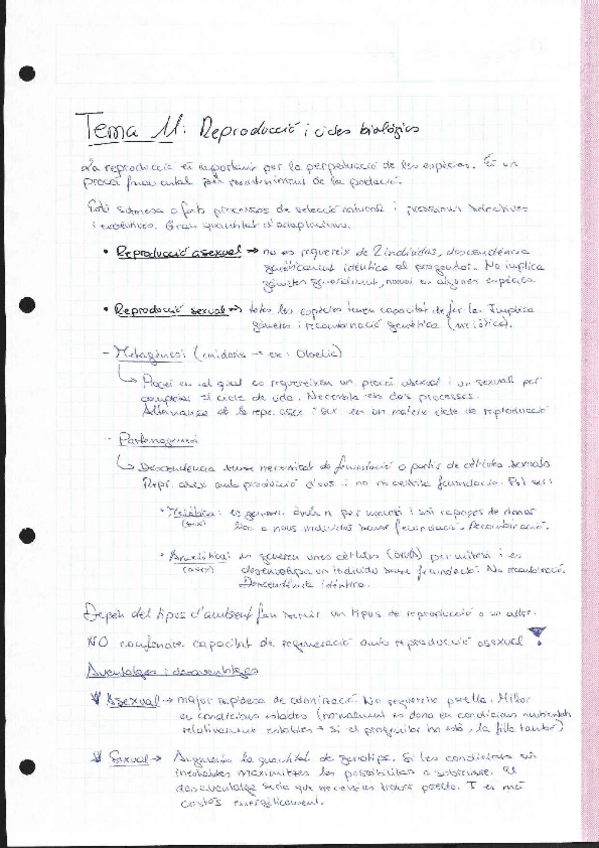 Tema 11: Reproducció i cicles biològics
La reproducció és important per la perpetuació de les espècies. És un
procés fonamental pel manteniment de la població.
Està sotmesa a forts processos de selecció natural i pressions selectives
i evolutives. Gran quantitat d'adaptacions.
• Reproducció asexual → no es requereix de 2 individus, descendència
genèticament idèntica al progenitor. No implica
gàmetes generalment, només en algunes espècies.
• Reproducció sexual → totes les espècies tenen capacitat de fer-la. Implica
gàmetes i recombinació genètica (meiòtica).
- Metagènesi (cnidaris → ex: Obelia)
↳ Procés en el qual es requereixen un procés asexual i un sexual per
completar el cicle de vida. Necessita els dos processos.
Alternança de la repr. asex i sex en un mateix cicle de reproducció
- Partenogènesi
↳ Descendència sense necessitat de fecundació a partir de cèl·lules sexuals
Repr. asex amb producció d'ous i no necessita fecundació. Pot ser:
• Meiòtica: es generen òvuls n per meiosi i són capaços de donar
(sex) lloc a nous individus sense fecundació. Recombinació.
• Ameiòtica: es generen unes cèl·lules (òvuls) per mitosi i es
(asex) desenvolupa un individu sense fecundació. No recombinació.
Descendència idèntica.
Depèn del tipus d'ambient fan servir un tipus de reproducció o un altre.
NO confondre capacitat de regeneració amb reproducció asexual
Avantatges i desavantatges
Asexual → major rapidesa de colonització. No requereix parella. Millor
en condicions estables (normalment es dona en condicions ambientals
relativament estables → si el progenitor ho està, la filla també)
Sexual → Augmenta la quantitat de genotips. Si les condicions són
inestables maximitzes les possibilitats a sobreviure. El
desavantatge seria que necessites trobar parella. I és més
costós energèticament.